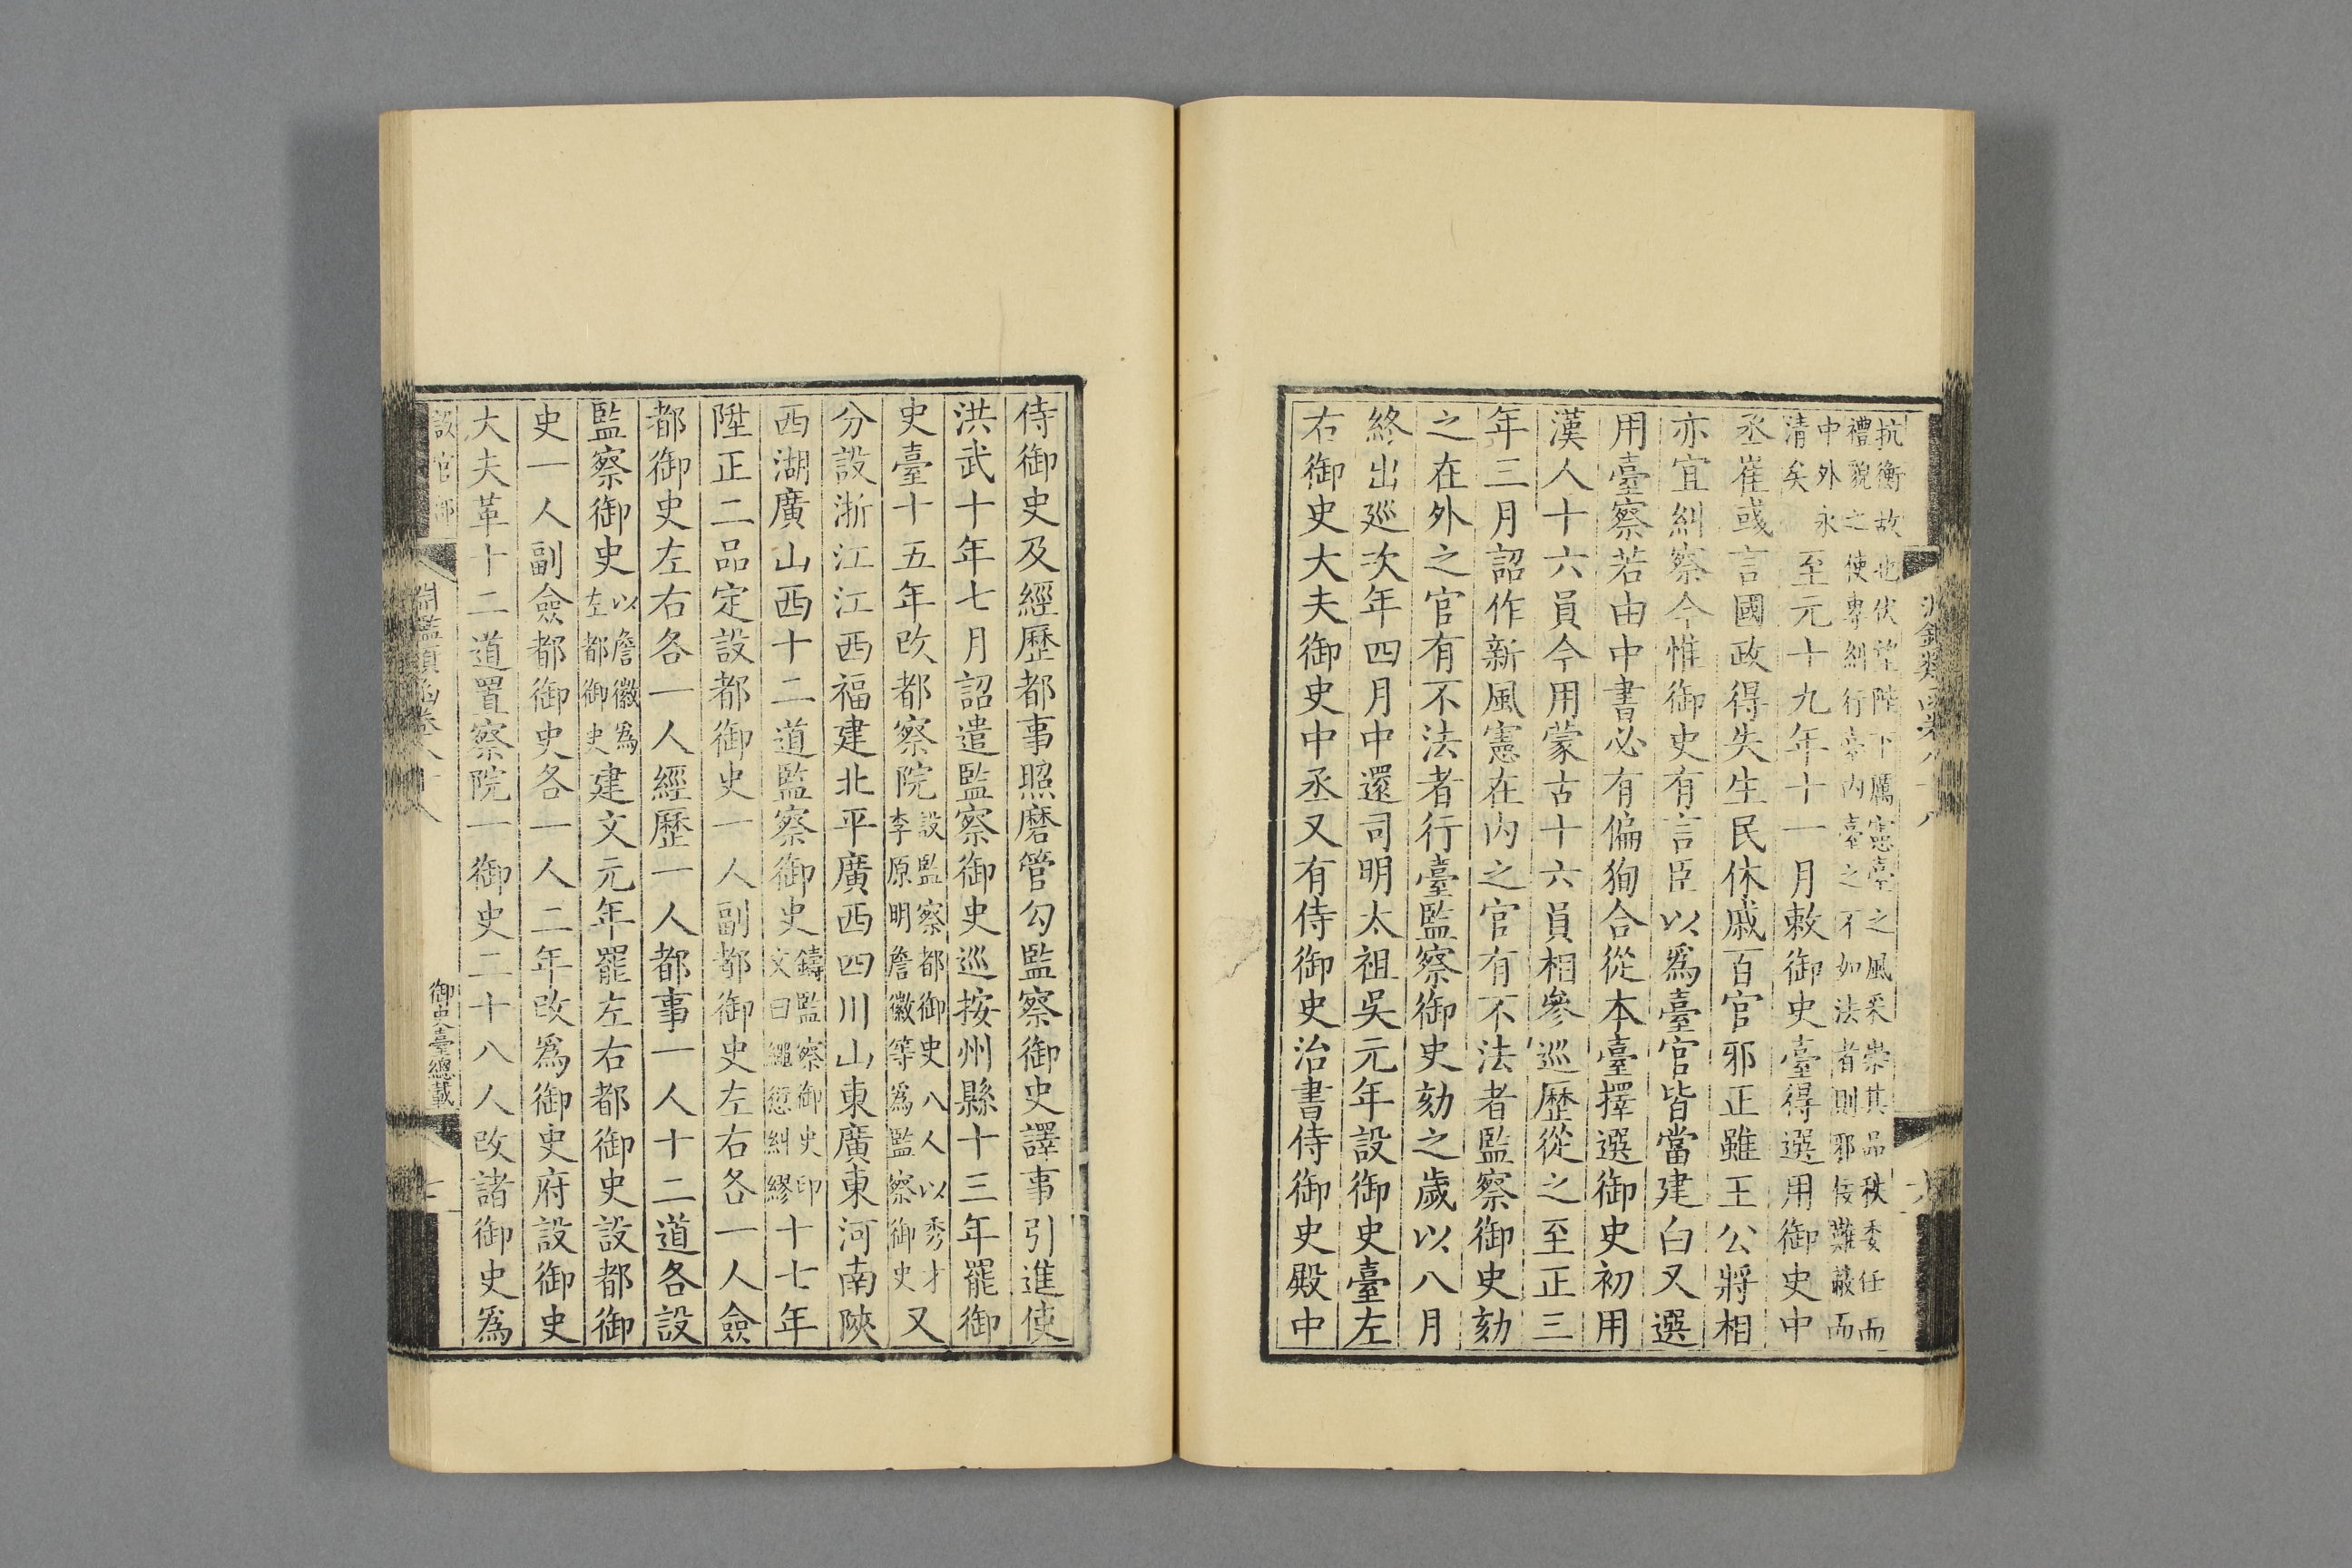 抗衡故也伏望陛下厲憲臺之風采崇其品秩委任而
禮貌之使專糾行臺內臺之不如法者則邪佞難蔽而
中外永
清矣
至元十九年十一月敕御史臺得選用御史中
丞崔彧言國政得失生民休戚百官邪正雖王公將相
亦宜糾察今惟御史有言臣以爲臺官皆當建白又選
用臺察若由中書必有偏狥合從本臺擇選御史初用
漢人十六員今用蒙古十六員相參巡歷從之至正三
年三月詔作新風憲在內之官有不法者監察御史劾
之在外之官有不法者行臺監察御史劾之歲以八月
終出廵次年四月中還司明太祖吳元年設御史臺左
右御史大夫御史中丞又有侍御史治書侍御史殿中
侍御史及經歷都事照磨管勾監察御史譯事引進使
洪武十年七月詔遣監察御史巡按州縣十三年罷御
史臺十五年改都察院
設監察都御史八人以秀才
李原明詹徽等爲監察御史
又
分設浙江江西福建北平廣西四川山東廣東河南陝
西湖廣山西十二道監察御史
鑄監察御史印
文曰繩愆糾繆
十七年
陞正二品定設都御史一人副都御史左右各一人僉
都御史左右各一人經歷一人都事一人十二道各設
監察御史
以詹徽爲
左都御史
建文元年罷左右都御史設都御
史一人副僉都御史各一人二年改爲御史府設御史
大夫革十二道置察院一御史二十八人改諸御史爲
設官部
淵鑑類函卷八十八
御史臺總載